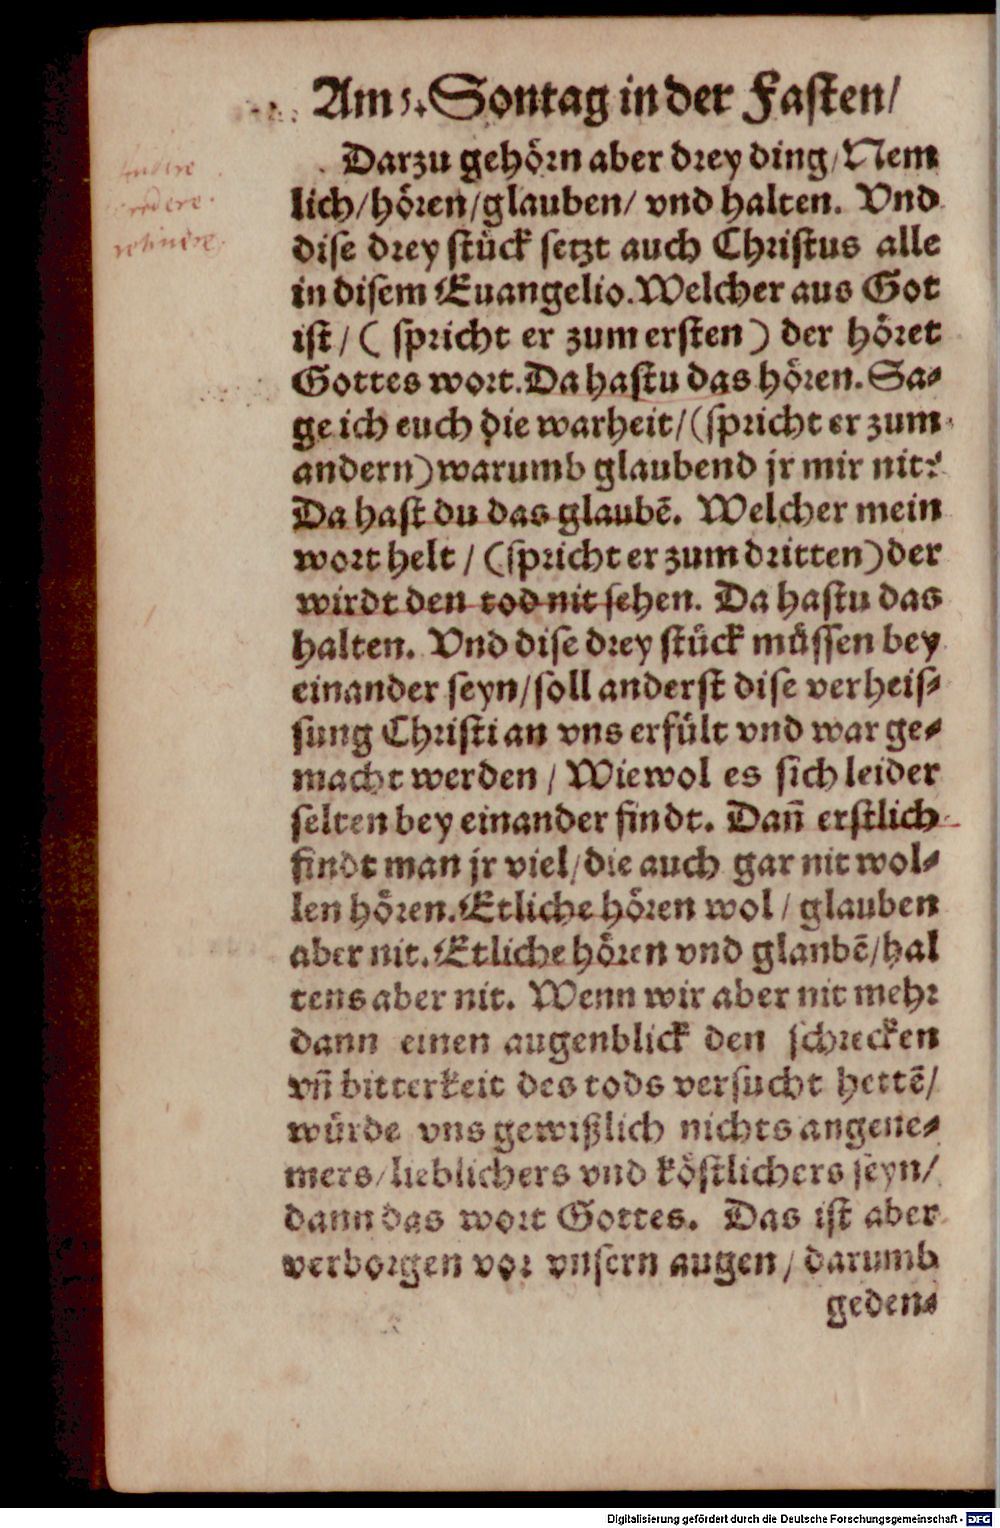 Am 5. Sontag in der Fasten/
Darzu gehörn aber drey ding/Nem
lich/hören/glauben/ vnd halten. Vnd
dise drey stück setzt auch Christus alle
in disem Euangelio. Welcher aus Got
ist/ ( spricht er zum ersten ) der höret
Gottes wort. Da hastu das hören. Sa⸗
ge ich euch die warheit/(spricht er zum
andern) warumb glaubend jr mir nit?
Da hast du das glaubẽ. Welcher mein
wort helt / (spricht er zum dritten) der
wirdt den tod nit sehen. Da hastu das
halten. Vnd dise drey stück müssen bey
einander seyn/soll anderst dise verheis⸗
sung Christi an vns erfült vnd war ge⸗
macht werden / Wiewol es sich leider
selten bey einander findt. Dañ erstlich
findt man jr viel/die auch gar nit wol⸗
len hören. Etliche hören wol / glauben
aber nit. Etliche hören vnd glaubẽ/hal
tens aber nit. Wenn wir aber nit mehr
dann einen augenblick den schrecken
vñ bitterkeit des tods versucht hettẽ/
würde vns gewißlich nichts angene⸗
mers/lieblichers vnd köstlichers seyn/
dann das wort Gottes. Das ist aber
verborgen vor vnsern augen / darumb
geden⸗
audire
credere.
retinere.
Digitalisierung gefördert durch die Deutsche Forschungsgemeinschaft - DFG